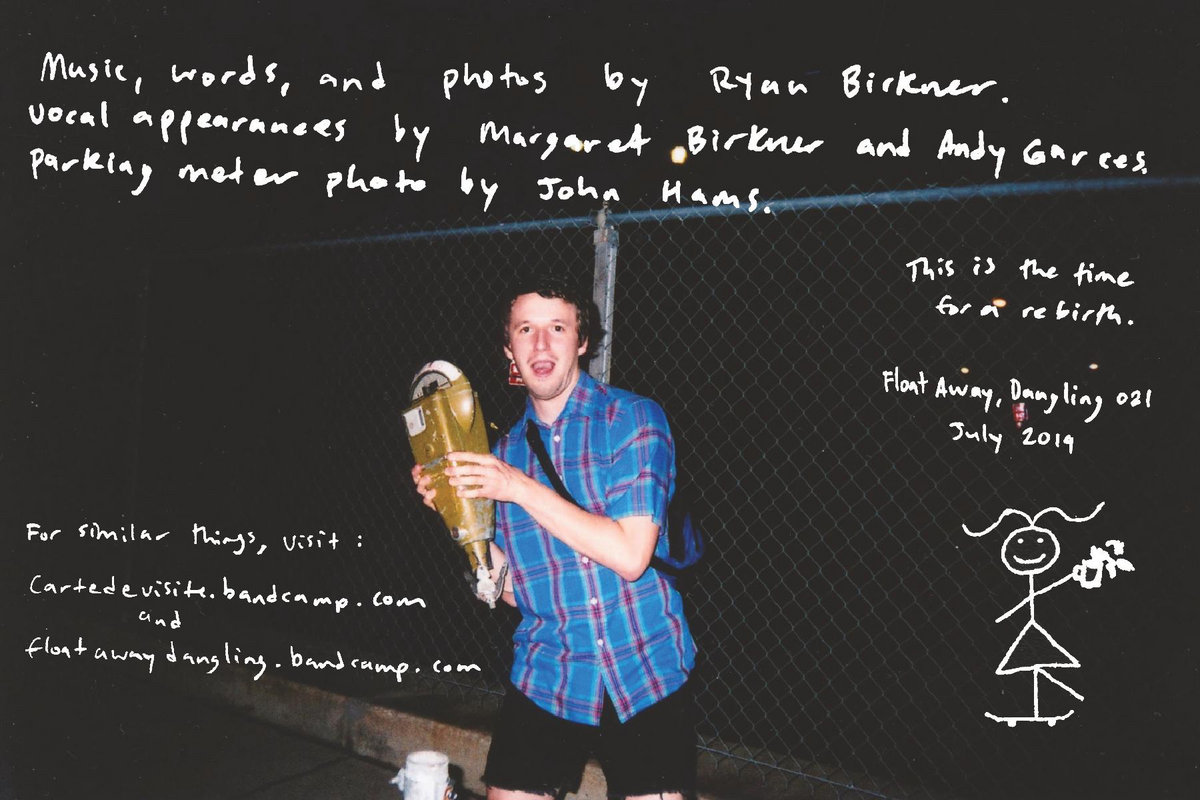 Music, words, and photos by Ryan Birkner.
vocal appearances by Margaret Birkner and Andy Garces.
parking meter photo by John Hams.
This is the time
for a rebirth.
Float Away, Dangling 021
July 2019
For similar things, visit :
Cartedevisite.bandcamp.com
and
floatawaydangling.bandcamp.com